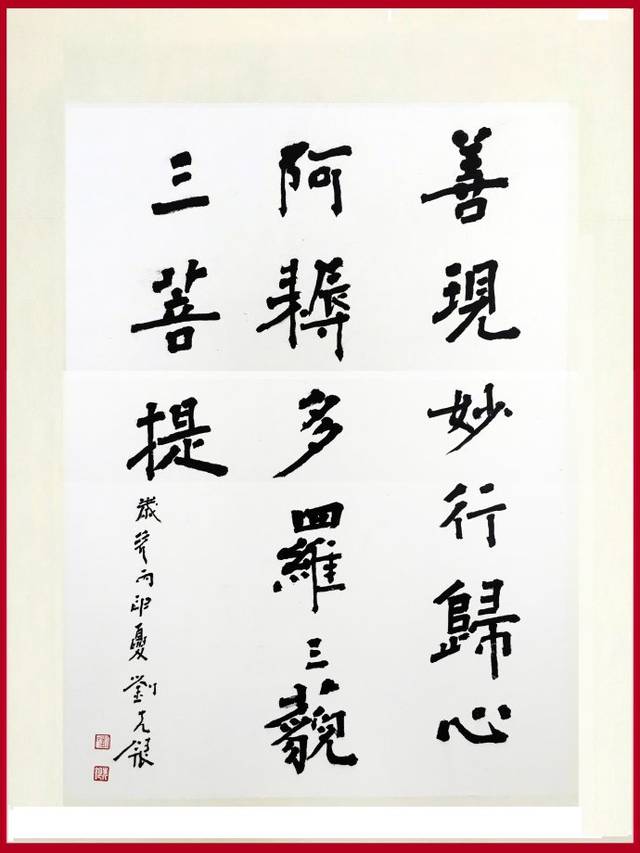 善現妙行歸心
阿耨多羅三藐
三菩提
歲夏劉克